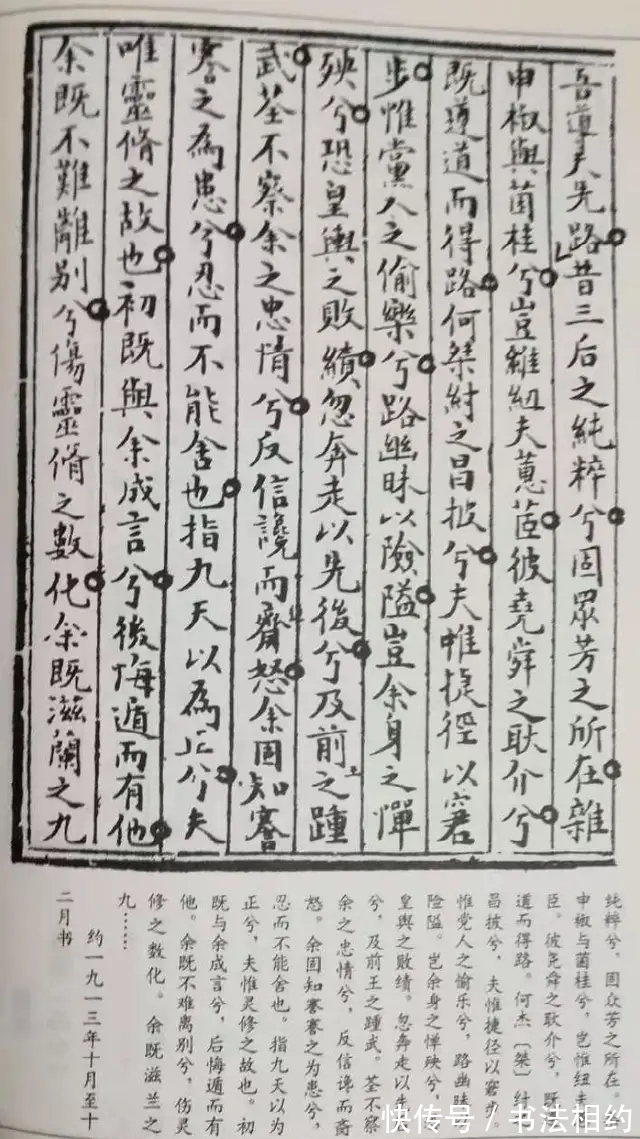 吾導夫先路昔三后之純粹兮固眾芳之所在雜
申椒與菌桂兮豈維紐夫蕙茝彼堯舜之耿介兮
既遵道而得路何桀紂之昌披兮夫惟捷徑以窘
步惟黨人之偷樂兮路幽昧以險隘豈余身之憚
殃兮恐皇輿之敗績忽奔走以先後兮及前之踵
武荃不察余之忠情兮反信讒而齌怒余固知謇
謇之為患兮忍而不能舍也指九天以為正兮夫
唯靈脩之故也初既與余成言兮後悔遁而有他
余既不難離別兮傷靈脩之數化余既滋蘭之九
纯粹兮，固众芳之所在。
申椒与菌桂兮，岂惟纽夫
臣。彼尧舜之耿介兮，既
道而得路。何杰〔桀〕纣
昌披兮，夫惟捷径以窘步。
惟党人之偷乐兮，路幽昧
险隘。岂余身之惮殃兮，
皇舆之败绩。忽奔走以先
兮，及前王之踵武。荃不察
余之忠情兮，反信谗而齌
怒。余固知謇謇之为患兮，
忍而不能舍也。指九天以为
正兮，夫惟灵修之故也。初
既与余成言兮，后悔遁而有
他。余既不难离别兮，伤灵
修之数化。余既滋兰之
九……
约一九一三年十月至十
二月书
快传号/书法相约